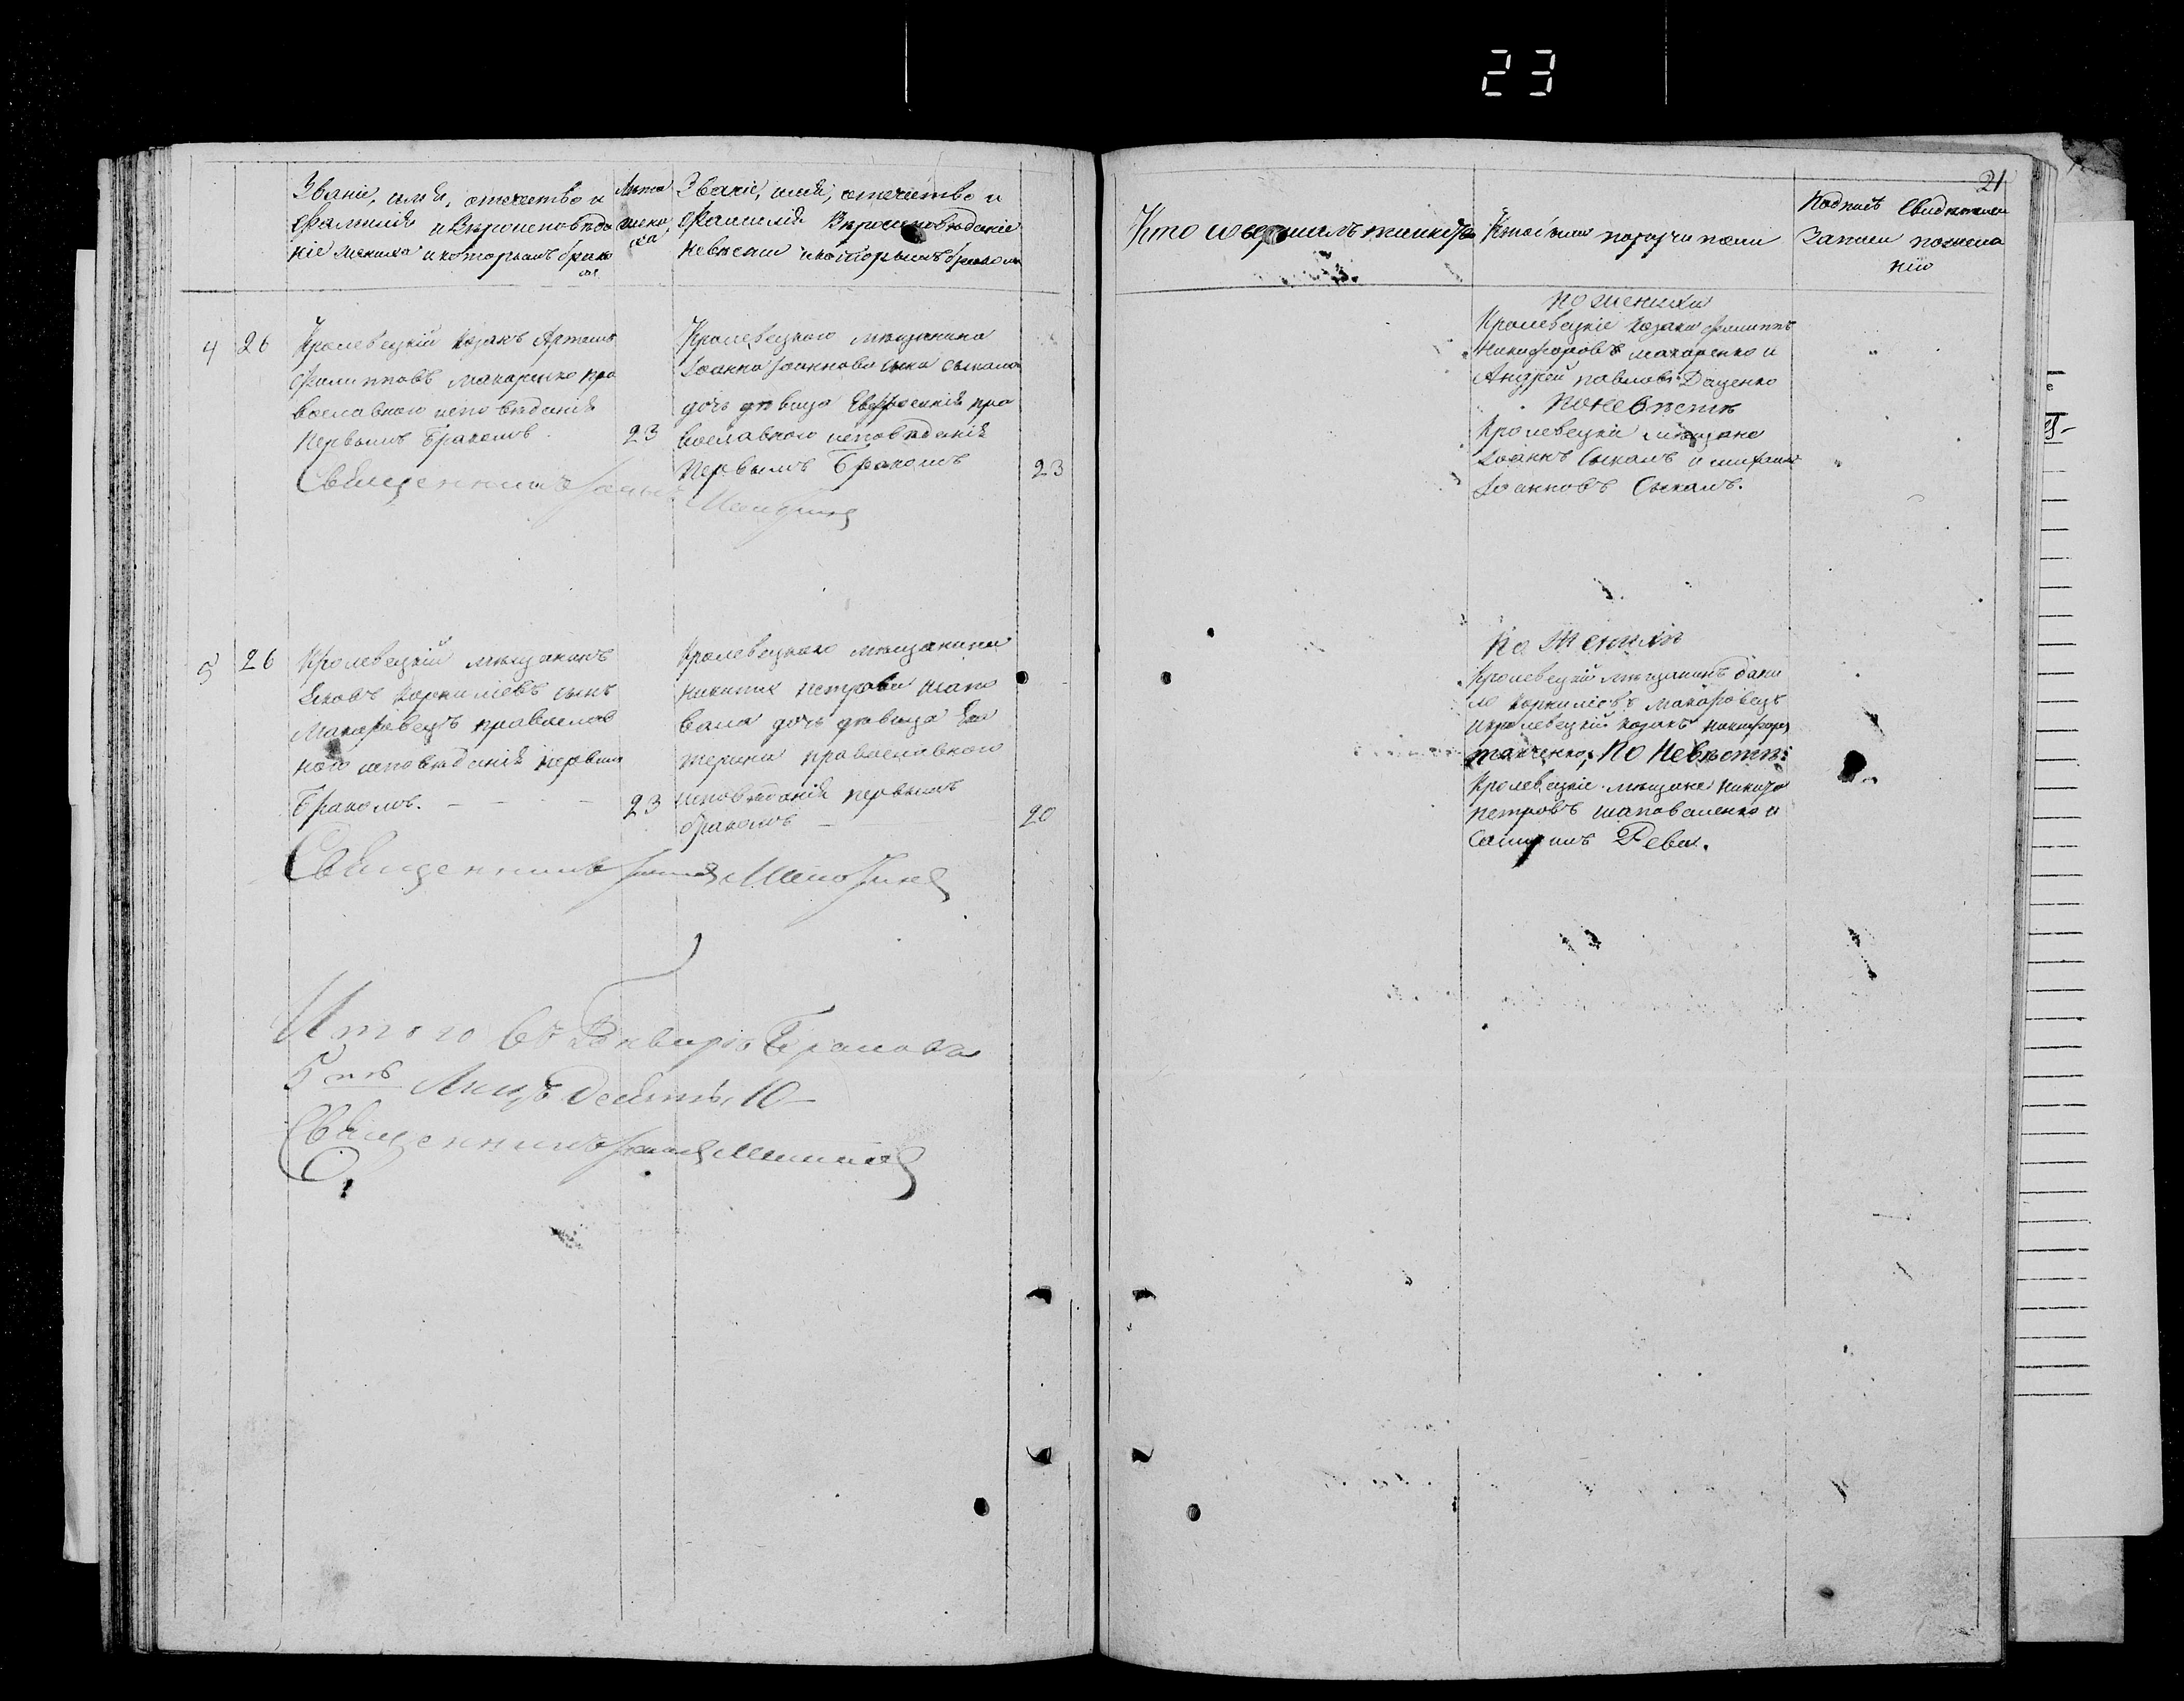 23
21
Званіе, имя, отечество и
Фамилія и Вѣроисповѣда
ніе жениха и которымъ брако
мъ
Лѣта
жени
ха
Званіе, имя, отечество и
Фамилія Вѣроисповѣданіе
невѣсты и которымъ бракомъ
Кто совершалъ таинство
Кто были поручители
Подпись Свидѣтелей
Записи по жела
нію
4 26
Кролевецкій козакъ Артемъ
Филиповъ Макаренко пра
вославного исповѣданія
Первымъ Бракомъ
23
Кролевецкого мѣщанина
Іоанна Іоаннова сына
дочь дѣвица Евфросинія пра
вославного исповѣданія
Первымъ Бракомъ
23
Священникъ
по женихи
Кролевецкіе козаки Филиппъ
Никифоровъ Макаренко и
Андрей Павловъ Даценко
По невѣстѣ
Кролевецкіи мѣщане
Іоаннъ и
Іоанновъ
5 26
Кролевецкій мѣщанинъ
Яковъ Корниліевъ сынъ
Макаровецъ православ
ного исповѣданія первымъ
Бракомъ.
23
Кролевецкого мѣщанина
Никиты Петрова Шапо
вала дочь дѣвица Ека
терина православного
исповѣданія первымъ
бракомъ
20
Священникъ
По Женихѣ
Кролевецкій мѣщанинъ Дани
ло Корниліевъ Макаровецъ
и кролевецкій козакъ Никифоръ
По Невѣстѣ:
Кролевецкіе мѣщане Никита
Петровъ Шаповаленко и
Рева.
Итого въ Январѣ Браковъ
5ть Лицъ десять 10
Священникъ